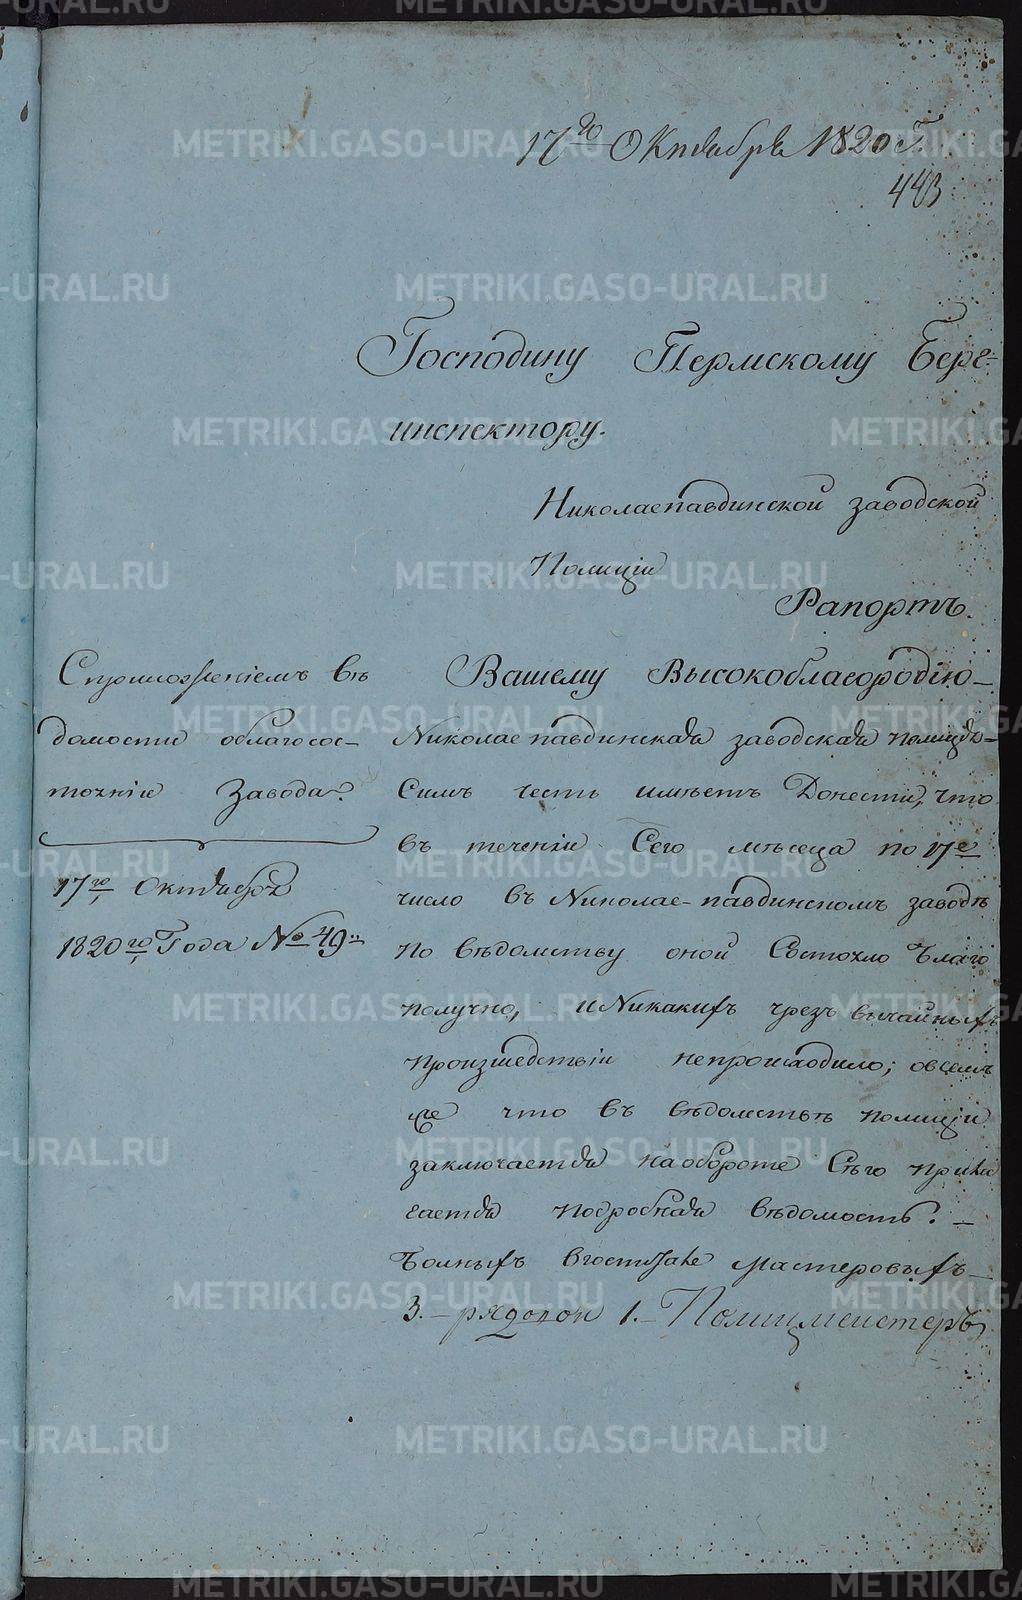 17го Октября 1820 Г.
443
Господину Пермскому Берг-
инспектору.
Николаепавдинской заводской
Полиціи
Рапортъ.
Сприложеніемъ вѣ
домости облагосос-
тояніи Завода.
17го Октября
1820го Года № 49
Вашему Высокоблагородію
Николаепавдинская заводская полиція
Симъ честь имѣетъ Донести, что
въ теченіи Сего мѣсеца по 17е
число въ Николае-павдинскомъ заводѣ
по вѣдомству оной Състояло Благо
получно, и Никакихъ чрезъвычайныхъ
произшедствіи непроисходило; овсемъ
же что въ вѣдомствѣ полиціи
заключается наоборотѣ Сѣго прила
гается подробная вѣдомость. —
Больныхъ вгоспитале Мастеровыхъ
3. — рядовой 1. — Полицмейстеръ
METRIKI.GASO-URAL.RU